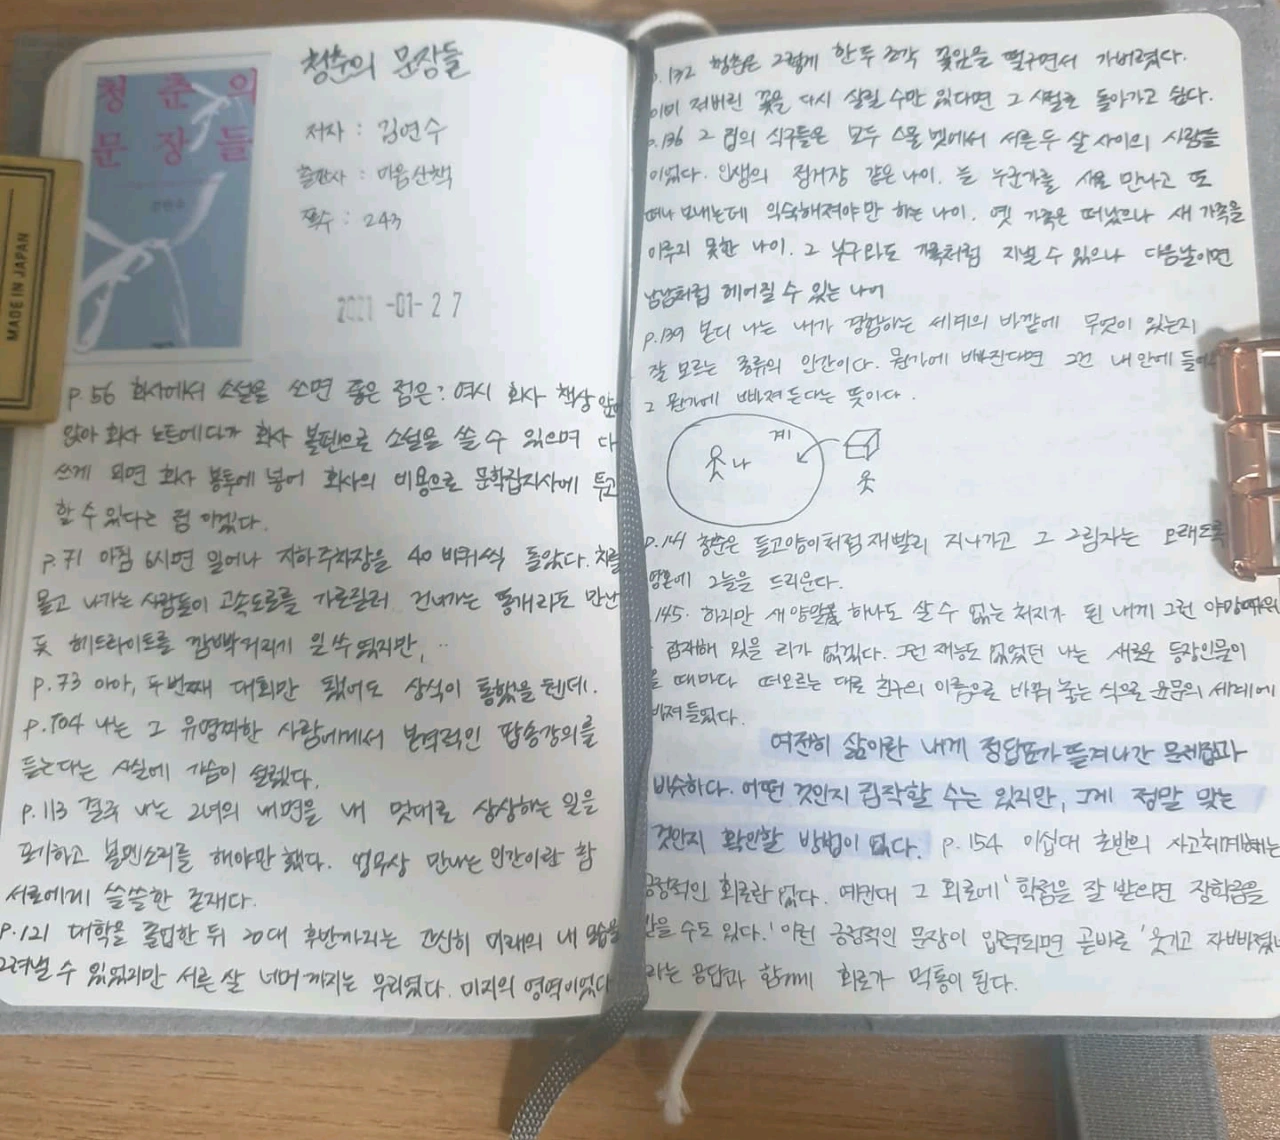 MADE IN JAPAN
청춘의
문장들
청춘의 문장들
저자 : 김연수
출판사 : 마음산책
쪽수 : 243
2021-01-27
p.56 회사에서 소설을 쓰면 좋은 점은 : 역시 회사 책상 앞에
앉아 회사 노트에다가 회사 볼펜으로 소설을 쓸 수 있으며 다
쓰게 되면 회사 봉투에 넣어 회사의 비용으로 문학잡지사에 투고
할 수 있다는 점이겠다.
p.71 아침 6시면 일어나 지하주차장을 40바퀴씩 돌았다. 차를
몰고 나가는 사람들이 고속도로를 가로질러 건너가는 똥개라도 만난
듯 헤드라이트를 깜빡거리기 일쑤였지만, ..
p.73 아아, 두번째 대회만 됐어도 상식이 통했을 텐데.
p.104 나는 그 유명짜한 사람에게서 본격적인 팝송강의를
듣는다는 사실에 가슴이 설렜다.
p.113 결국 나는 그녀의 내면을 내 멋대로 상상하는 일을
포기하고 볼멘소리를 해야만 했다. 업무상 만나는 인간이란 참
서로에게 쓸쓸한 존재다.
p.121 대학을 졸업한 뒤 20대 후반까지는 간신히 미래의 내 모습을
그려낼 수 있었지만 서른 살 너머까지는 무리였다. 미지의 영역이었다
p.132 청춘은 그렇게 한두 조각 꽃잎을 떨구면서 가버렸다.
이미 져버린 꽃을 다시 살릴 수만 있다면 그 시절로 돌아가고 싶다.
p.136 그 집의 식구들은 모두 스물 몇에서 서른 두 살 사이의 사람들
이었다. 인생의 정거장 같은 나이. 늘 누군가를 새로 만나고 또
떠나 보내는데 익숙해져야만 하는 나이. 옛 가족은 떠났으나 새 가족을
이루지 못한 나이. 그 누구와도 가족처럼 지낼 수 있으나 다음날이면
남남처럼 헤어질 수 있는 나이
p.139 본디 나는 내가 경험하는 세계의 바깥에 무엇이 있는지
잘 모르는 종류의 인간이다. 뭔가에 빠진다면 그건 내 안에 들어
그 뭔가에 빠져든다는 뜻이다.
계
나
p.141 청춘은 들고양이처럼 재빨리 지나가고 그 그림자는 오래도록
영혼에 그늘을 드리운다.
145. 하지만 새 양말을 하나도 살 수 없는 처지가 된 내게 그런 야망 따위
잠재해 있을 리가 없겠다. 그런 재능도 없었던 나는 새로운 등장인물이
때마다 떠오르는 대로 친구의 이름으로 바꿔 놓는 식으로 윤문의 세계에
빠져들었다.
여전히 삶이란 내게 정답표가 뜯겨나간 문제집과
비슷하다. 어떤 것인지 짐작할 수는 있지만, 그게 정말 맞는
것인지 확인할 방법이 없다. p.154 이십대 초반의 사고체계에는
긍정적인 회로란 없다. 예컨대 그 회로에 '학점을 잘 받으면 장학금을
받을 수도 있다.' 이런 긍정적인 문장이 입력되면 곧바로 '웃기고 자빠졌네
라는 응답과 함께 회로가 먹통이 된다.